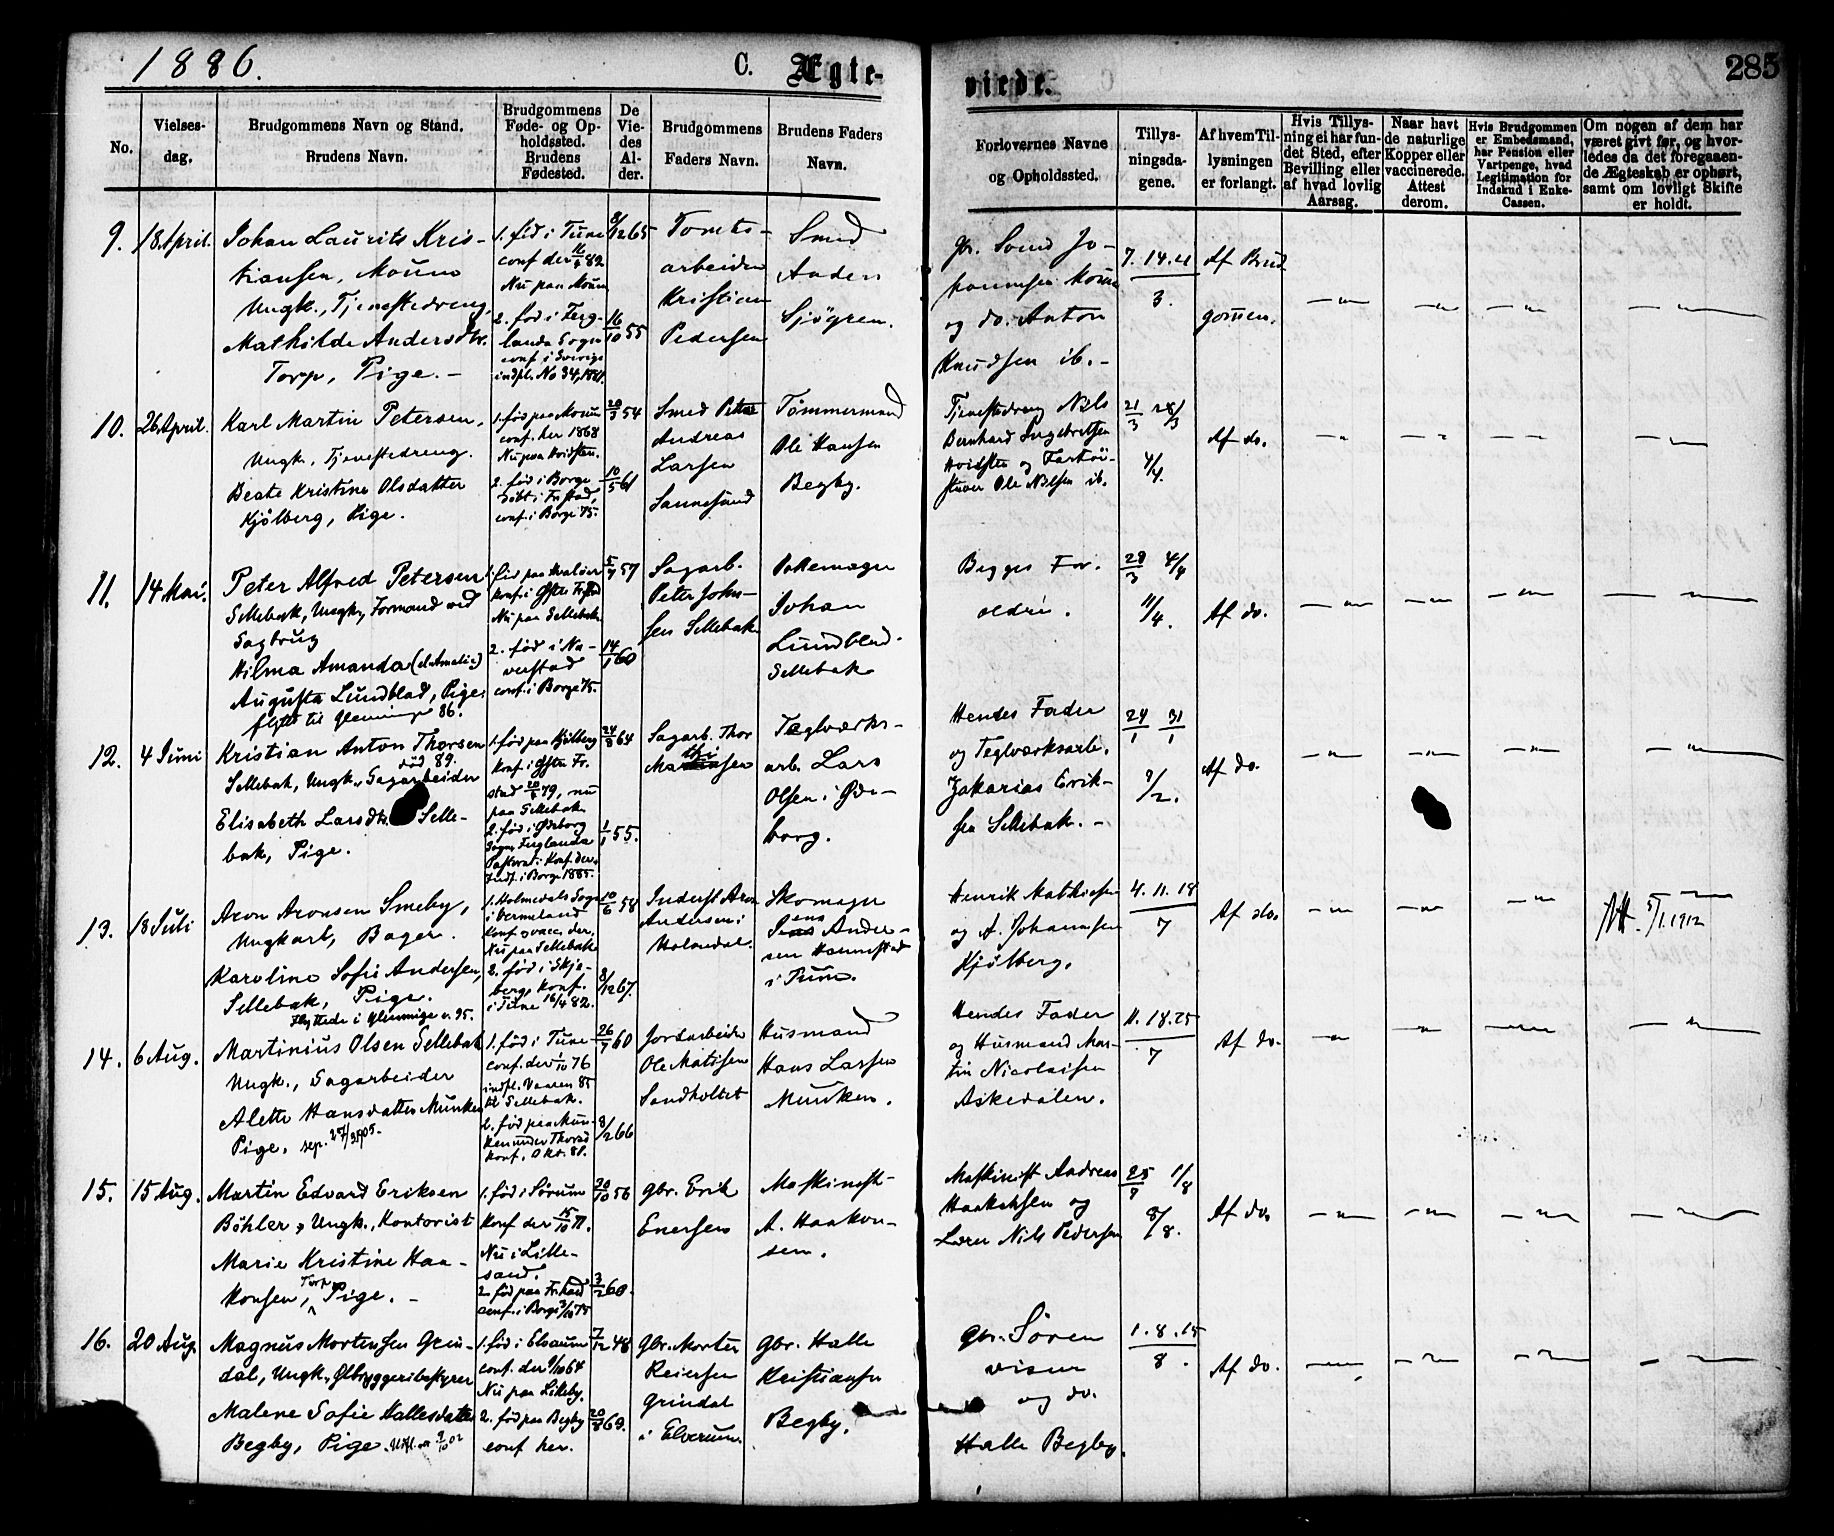 1886.
C. Ægte-
viede.
285
No.
Vielses-
dag.
Brudgommens Navn og Stand.
Brudens Navn.
Brudgommens
Føde- og Op-
holdssted.
Brudens
Fødested.
De
Vie-
des
Al-
der.
Brudgommens
Faders Navn.
Brudens Faders
Navn.
Forlovernes Navne
og Opholdssted.
Tillys-
ningsda-
gene.
Af hvem Til-
lysningen
er forlangt.
Hvis Tillys-
ning ei har fun-
det Sted, efter
Bevilling eller
af hvad lovlig
Aarsag.
Naar havt
de naturlige
Kopper eller
vaccinerede.
Attest
derom.
Hvis Brudgommen
er Embedsmand,
har Pension eller
Vartpenge, hvad
Legitimation for
Indskud i Enke-
Cassen.
Om nogen af dem har
været givt før, og hvor-
ledes da det foregaaen-
de Ægteskab er ophørt,
samt om lovligt Skifte
er holdt.
9.
18 April.
Johan Laurits Kris-
tiansen, Moum
Ungk., Tjenestedreng.
Mathilde Andersdtr.
Torp, Pige. -
1. fød i Tune
conf der 16/4 82
Nu paa Moum
2. fød i Ferg-
landa Sogn
conf. i Sverige
indfl. No 34, 1881.
9/12 65
16/10 55
Tomte-
arbeider
Kristian
Pedersen
Smed
Anders
Sjögren.
Johannesen Moum
og do. Anton
Knudsen ib. -
7. 14. 21
3.
Af Brud
gommen.
10.
26 April.
Karl Martin Petersen,
Ungk., Tjenestedreng.
Beate Kristine Olsdatter
Kjölberg, Pige.
1. fød paa Moum
conf. her 1868
Nu paa Hvidsten.
2. fød i Borge
döbt i Fr.stad,
conf. i Borge 75.
20/3 54
10/5 61
Smed Peter
Andreas
Larsen
Sannesund
Tømmermand
Ole Hansen
Begby.
Tjenestedreng Nils
Bernhard Ingebretsen
Hvidsten og Fartöi-
stuer Ole Nilsen ib.
21/3 28/3
4/4.
Af do.
11.
14 Mai.
Peter Alfred Petersen
Sellebak, Ungk., Formand ved
Sagbrug
Hilma Amanda (el. Amalia)
Augusta Lundblad, Pige.
flyttet til Glemminge 86.
1. fød paa Hvaløer
Konf. i Østre Fr.stad
Nu paa Sellebak
2. fød i Na-
verstad
conf. i Borge 75.
5/7 57
14/1 60
Sagarb.
Peter Johns-
sen Sellebak
Johan
Lundblad.
Sellebak
Begges For-
ældre.
28/3 4/4
11/4.
Af do.
12.
4 Juni
Kristian Anton Thorsen
död 89.
Sellebak, Ungk., Sagarbeider
Elisabeth Larsdtr. Selle-
bak, Pige.
1. fød paa Kjölberg
Konf. i Østre Fr.
stad 20/4 79, nu
paa Sellebak
2. fød i Ødeborg
Sogn, Ferglanda
Pastorat. Konf. der.
Indf. i Borge 1885.
24/9 64
1/1 55.
Sagarb. Thor
Mathisen
Teglværks-
arb. Lars
Olsen i Øde-
borg.
Hendes Fader
og Teglværksarb.
Zakarias Erik-
sen Sellebak. -
24/1 31/1
7/2.
Af do.
13.
18 Juli
Aron Aronsen Smeby,
Ungkarl, Bager.
Karoline Sofie Andersen,
Sellebak, Pige.
Flyttede i Glemminge v. 95.
1. Holmedals Sogn
i Vermeland
Konf. & vacc. der.
Nu paa Sellebak
2. fød i Skje-
berg, Konf.
i Tune 16/4 82.
10/6 58
8/12 67.
Inderst Aron
Andersen i
Holmedal.
Skomager
Jens Ander-
sen Hannestad
i Tune.
Henrik Mathiesen
og A. Johannesen
Kjölberg.
4. 11. 18
7
Af do.
5/1. 1912
14.
6 Aug.
Martinius Olsen Sellebak
Ungk., Sagarbeider
Alette Hansdatter Munken
Pige.
1. fød i Tune
conf. der 1/10 76
indfl. Vaaren 85
til Sellebak.
2. fød paa Mun-
ken under Thorsö
Konf. Okt. 81.
26/7 60
8/2 66
Jordarbeider
Ole Matisen
Sandholtet
Husmand
Hans Larsen
Munken.
Hendes Fader
og Husmand Mar-
tin Nicolaisen
Askedalen.
11. 18. 25
7
Af do.
15.
15 Aug.
Martin Edvard Eriksen
Böhler, Ungk., Kontorist
Marie Kristine Haa-
konsen, Torp, Pige. -
1. fød i Sörum
Konf der 15/10 71.
Nu i Lille-
sand.
2. fød paa Fr.stad
conf. i Borge 3/10 75
20/10 56
3/2 60.
Gbr. Erik
Enersen
Maskinist
A. Haakon-
sen.
Maskinist Andreas
Haakonsen og
Lærer Nils Pedersen
25/7 1/8
8/8.
Af do.
16.
20 Aug.
Magnus Mortensen Grin-
dal, Ungk., Ølbryggeribestyrer
Malene Sofie Hallesdatter
Begby, Pige.
1. fød i Elverum
conf. der 9/10 64
Nu paa Lilleby.
2. fød paa Begby
conf her.
7/12 48
20/8 69.
Gbr. Morten
Reiersen
Grindal
i Elverum.
Gbr. Halle
Kristiansen
Begby.
Gbr. Sören
og do.
Halle Begby.
1. 8. 15
8.
Af do.